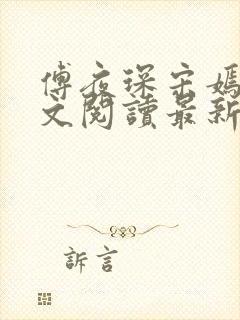 傅夜深宋嫣
文閱讀最新
訴言